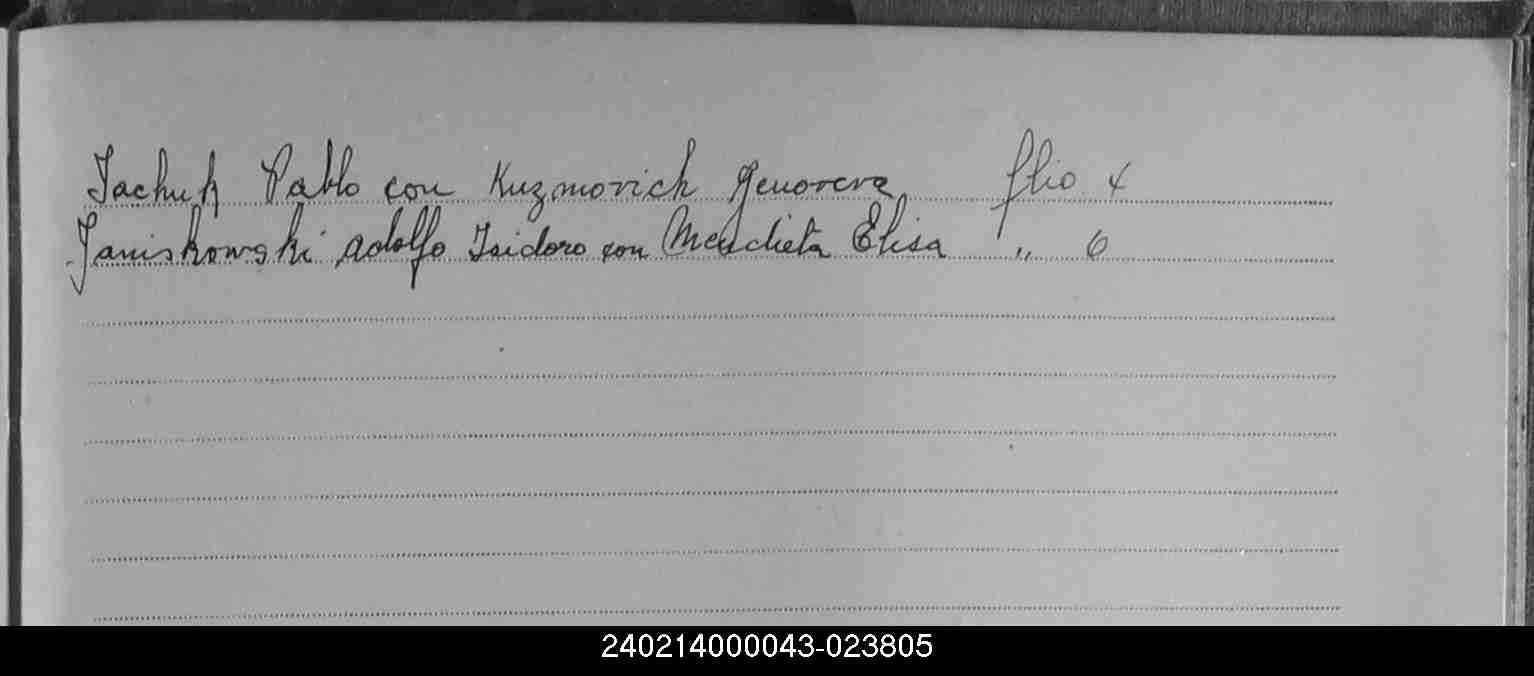 Jachuk Pablo con Kuzmovich Genoveva flio 4
Janiskowski Adolfo Isidoro con Mendieta Elisa " 6
240214000043-023805